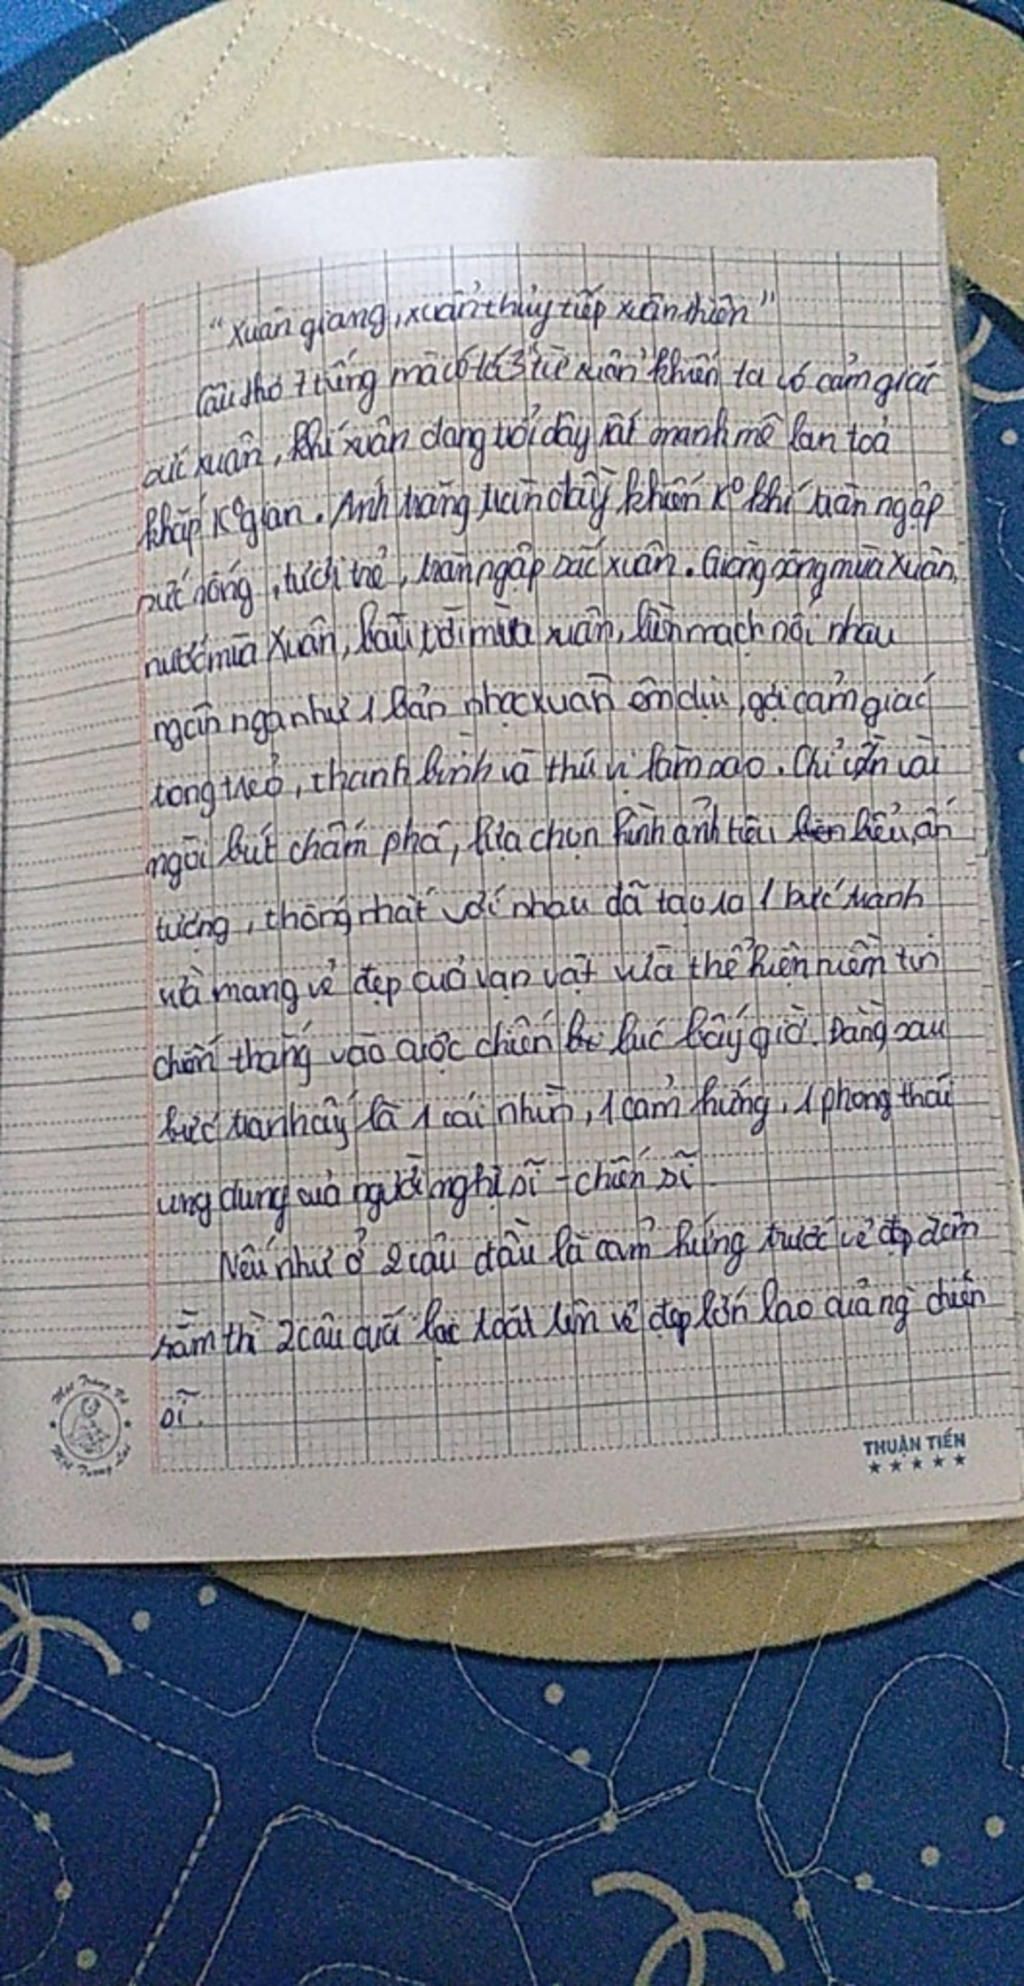 "Xuân giang, xuân thủy tiếp xuân thiên"
Câu thơ 7 tiếng mà có tới 3 từ xuân khiến ta có cảm giác
sức xuân, khí xuân đang trỗi dậy rất mạnh mẽ lan toả
khắp K° gian. Ánh trăng tràn đầy khiến K° khí tràn ngập
sức sống, tươi trẻ, tràn ngập sắc xuân. Giòng sông mùa xuân,
nước mùa Xuân, bầu trời mùa xuân, liền mạch nối nhau
ngân nga như 1 bản nhạc xuân êm dịu, gợi cảm giác
trong trẻo, thanh bình và thú vị làm sao. Chỉ cần vài
ngòi bút chấm phá, lựa chọn hình ảnh tiêu biểu, ấn
tượng, thống nhất với nhau đã tạo ra 1 bức tranh
vừa mang vẻ đẹp của vạn vật vừa thể hiện niềm tin
chiến thắng vào cuộc chiến lúc bấy giờ. Đằng sau
bức tranh ấy là 1 cái nhìn, 1 cảm hứng, 1 phong thái
ung dung của người nghị sĩ - chiến sĩ
Nếu như ở 2 câu đầu là cảm hứng trước vẻ đẹp đêm
rằm thì 2 câu cuối lại toát lên vẻ đẹp lớn lao của ng chiến
sĩ.
THUẬN TIẾN